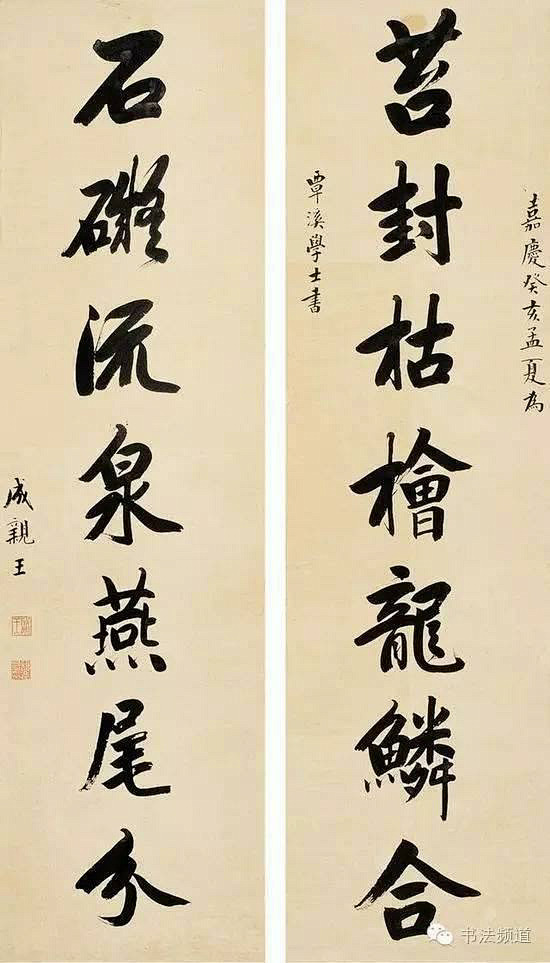 嘉慶癸亥孟夏為
苔封枯檜龍鱗合
覃溪學士書
石礙流泉燕尾分
成親王
书法频道